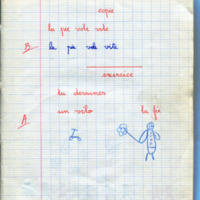 copie
la pie vole vite
B la pie vole vite
exercice
tu dessines
A un vélo la fé